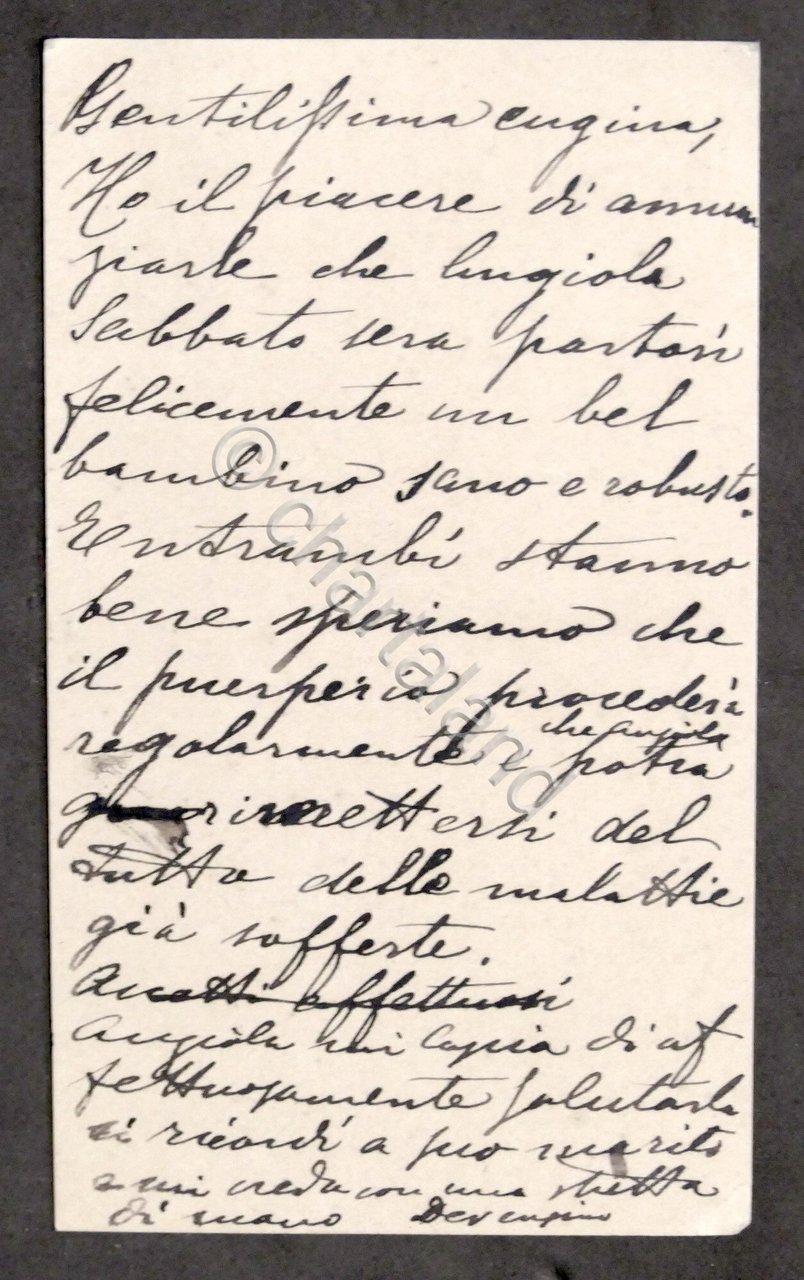 Gentilissima cugina,
Ho il piacere di annun
ziarle che Angiola
Sabbato sera partorì
felicemente un bel
bambino sano e robusto.
Entrambi stanno
bene speriamo che
il puerperio procederà
regolarmente e che Angiola potrà
rimettersi del
tutto delle malattie
già sofferte.
Accetti affettuosi
Angiola mi incarica di af
fettuosamente salutarla
mi ricordi a suo marito
e mi creda con una stretta
di mano Dev cugino
© chartaland